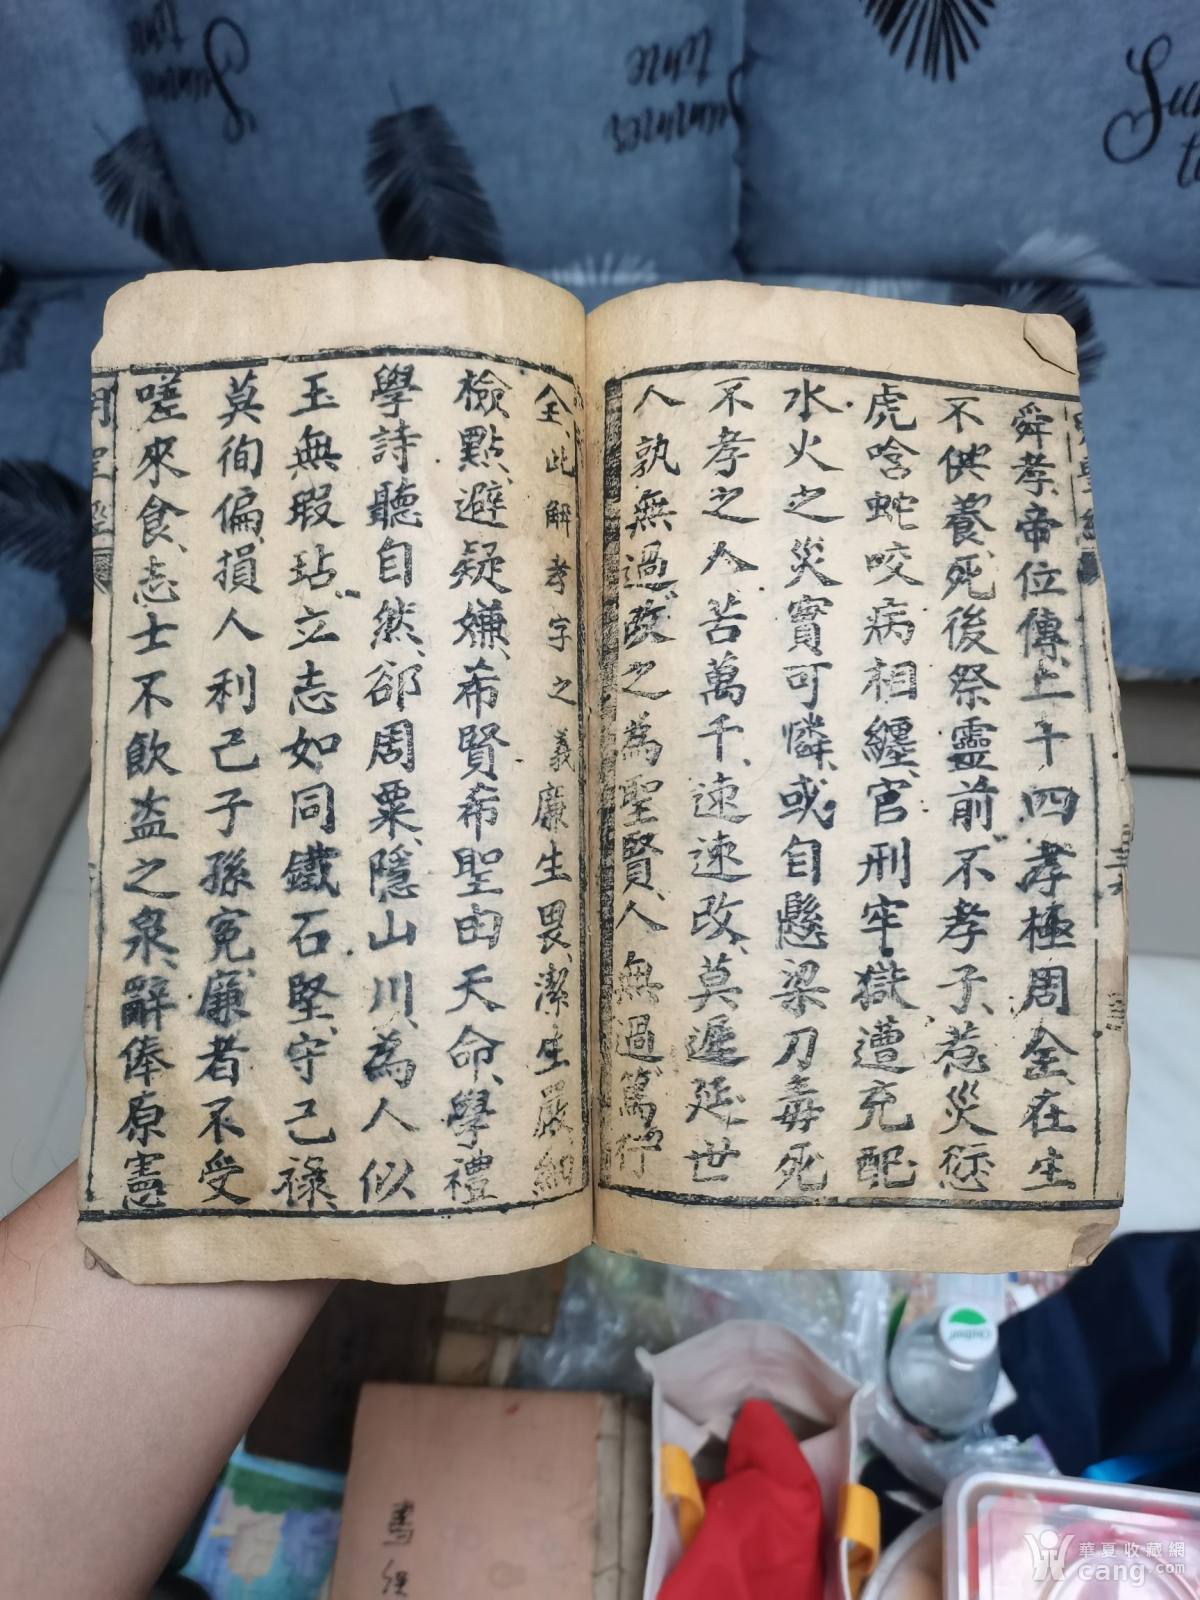 舜孝、帝位傳、二十四孝極周全、在生
不供養、死後祭靈前、不孝子、惹災愆
虎唅蛇咬病相纏、官刑牢獄遭充配
水火之災實可憐、或自懸梁刀毒死
不孝之人、苦萬千、速速改、莫遲延、世
人孰無過、改之為聖賢、人無過、篤行
全、此解孝字之義 廉生畏、潔生嚴、細
檢點、避疑嫌、希賢希聖由天命、學禮
學詩聽自然、郤周粟、隱山川、為人似
玉無瑕玷、立志如同鐵石堅、守己祿
莫徇偏、損人利己子孫冤、廉者不受
嗟來食、志士不飲盜之泉、辭俸原憲
書經
Summer time
Summer time
華夏收藏網
cang.com